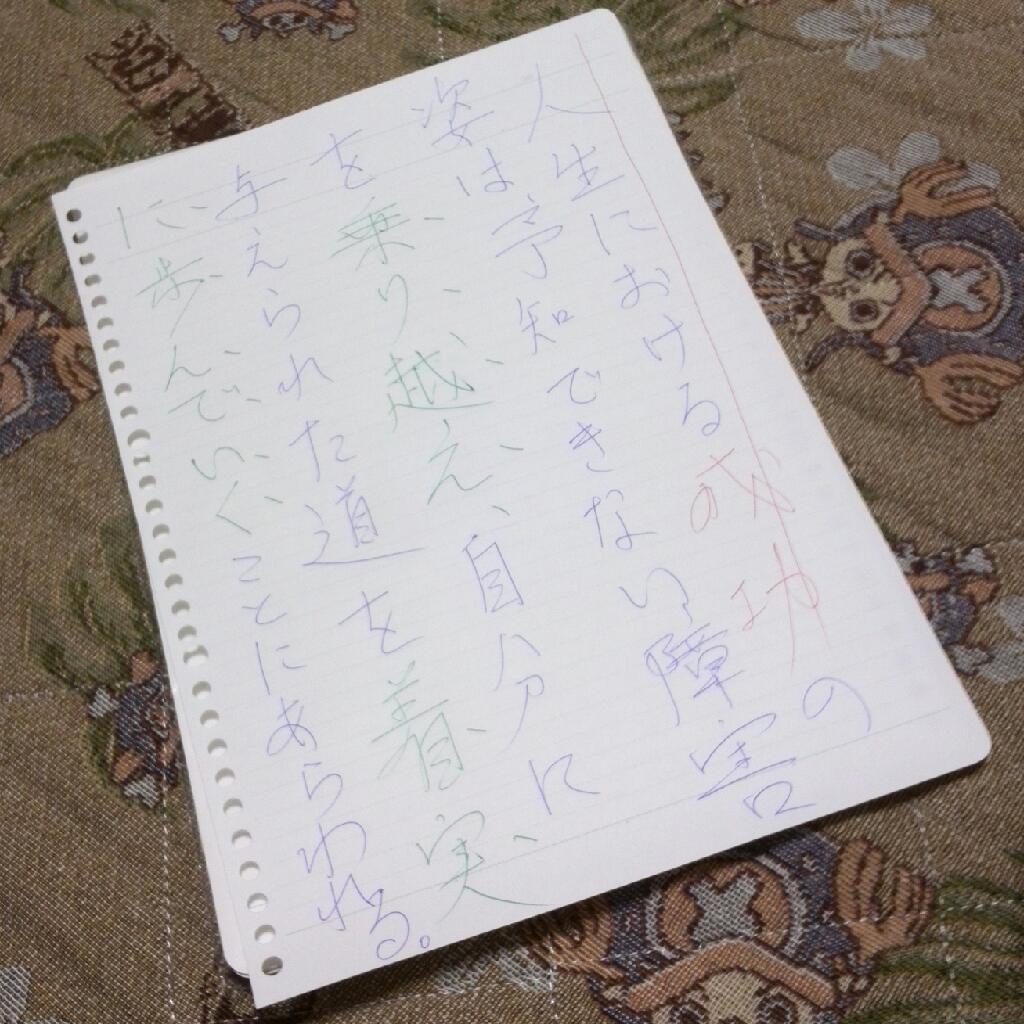 人生における成功の
姿は予知できない障害
を乗り越え、自分に
与えられた道を着実
に歩んでいくことにあらわれる。